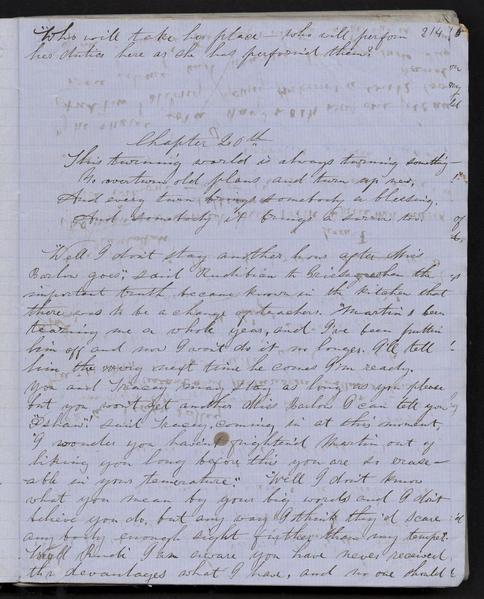 "Who will take her place — who will perform
her duties here as she has performed them?
214
Chapter 20th
This turning world is always turning something
To overturn old plans, and turn up new,
And every turn brings somebody a blessing,
And somebody it brings a sorrow too
"Well I don't stay another hour after Miss
Barlow goes," said to when the
important truth became known in the kitchen that
there was to be a change of teachers. "Martin's been
teasing me a whole year, and I've been puttin
him off and now I won't do it no longer. I'll tell
him the very next time he comes I'm ready.
You and Tracy may stay as long as you please
but you won't get another Miss Barlow I can tell you"
"Pshaw!" said Tracy coming in at this moment,
"I wonder you haven't frighten'd Martin out of
liking you long before this you are so erase-
able in your temerature." "Well I don't know
what you mean by your big words and I don't
believe you do, but any way I think they'd scare
any body enough sight further than my temper."
"Well I am aware you have never received
the devantages what I have, and no one should